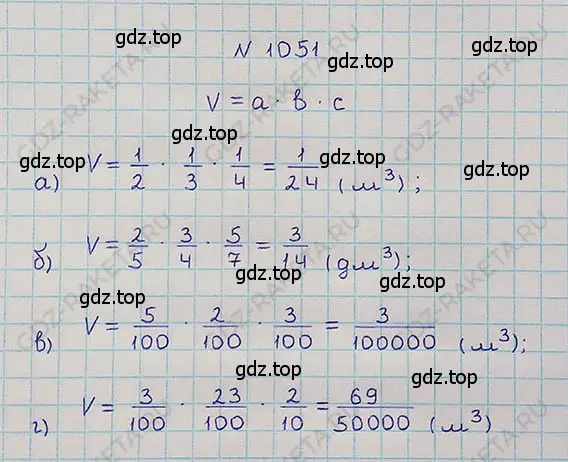 gdz.top
N 1051
gdz.top
V = a · в · c
gdz.top
gdz.top gdz.top
а) V = 1/2 · 1/3 · 1/4 = 1/24 (м³);
gdz.top
б) V = 2/5 · 3/4 · 5/7 = 3/14 (дм³);
gdz.top gdz.top
gdz.top
в) V = 5/100 · 2/100 · 3/100 = 3/100000 (м³);
gdz.top gdz.top
г) V = 3/100 · 23/100 · 2/10 = 69/50000 (м³)
gdz.top
GDZ-RAKETA.RU